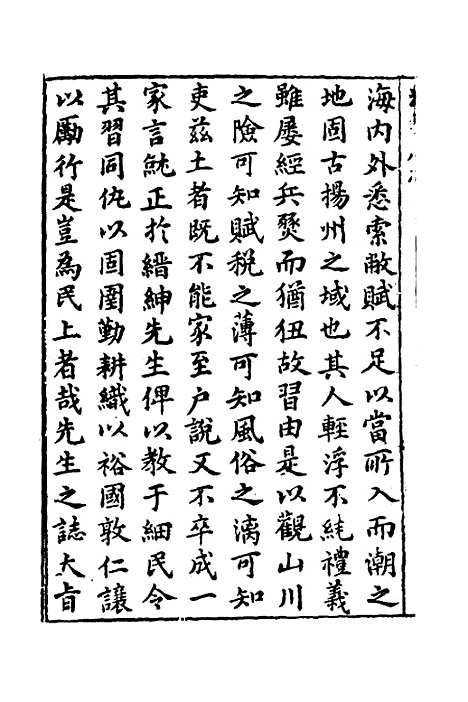 海内外悉索敝賦不足以當所入而潮之
地固古揚州之域也其人輕浮不純禮義
雖屢經兵燹而猶狃故習由是以觀山川
之險可知賦稅之薄可知風俗之漓可知
吏兹土者既不能家至户說又不卒成一
家言就正於縉紳先生俾以教于細民令
其習同仇以固圉勤耕織以裕國敦仁讓
以勵行是豈為民上者哉先生之誌大旨